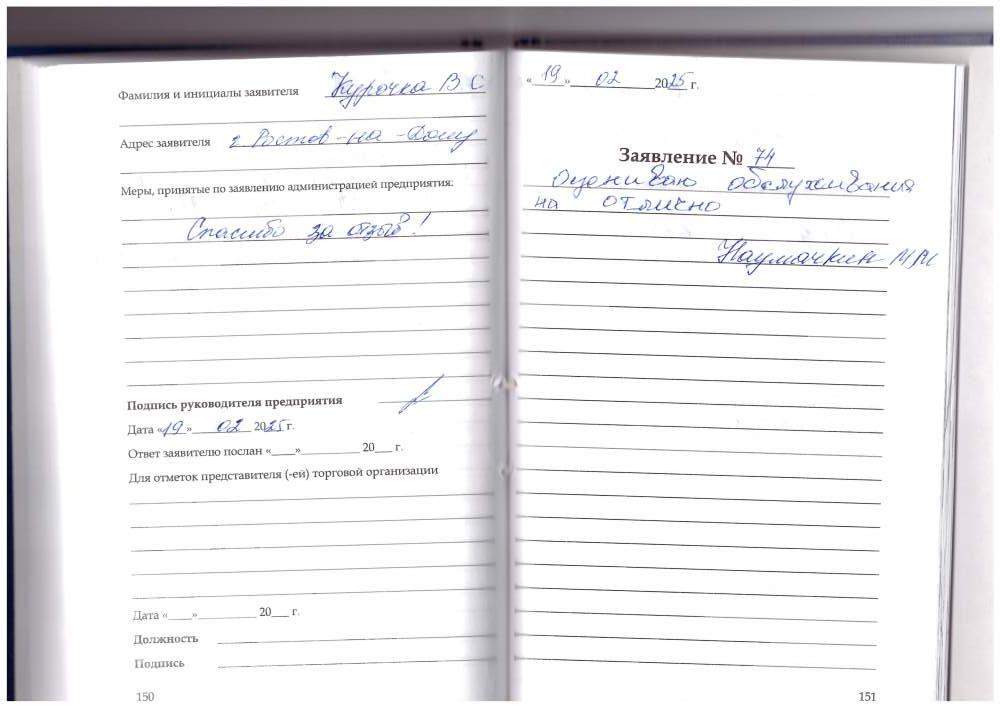 Фамилия и инициалы заявителя Курочка В С
Адрес заявителя г. Ростов-на-Дону
Меры, принятые по заявлению администрацией предприятия:
Спасибо за отзыв!
Подпись руководителя предприятия
Дата «19» 02 2025 г.
Ответ заявителю послан «____»__________ 20___ г.
Для отметок представителя (-ей) торговой организации
Дата «____»__________ 20___ г.
Должность
Подпись
150
«19» 02 2025 г.
Заявление № 74
Оцениваю обслуживания
на отлично
Наумочкин МM
151